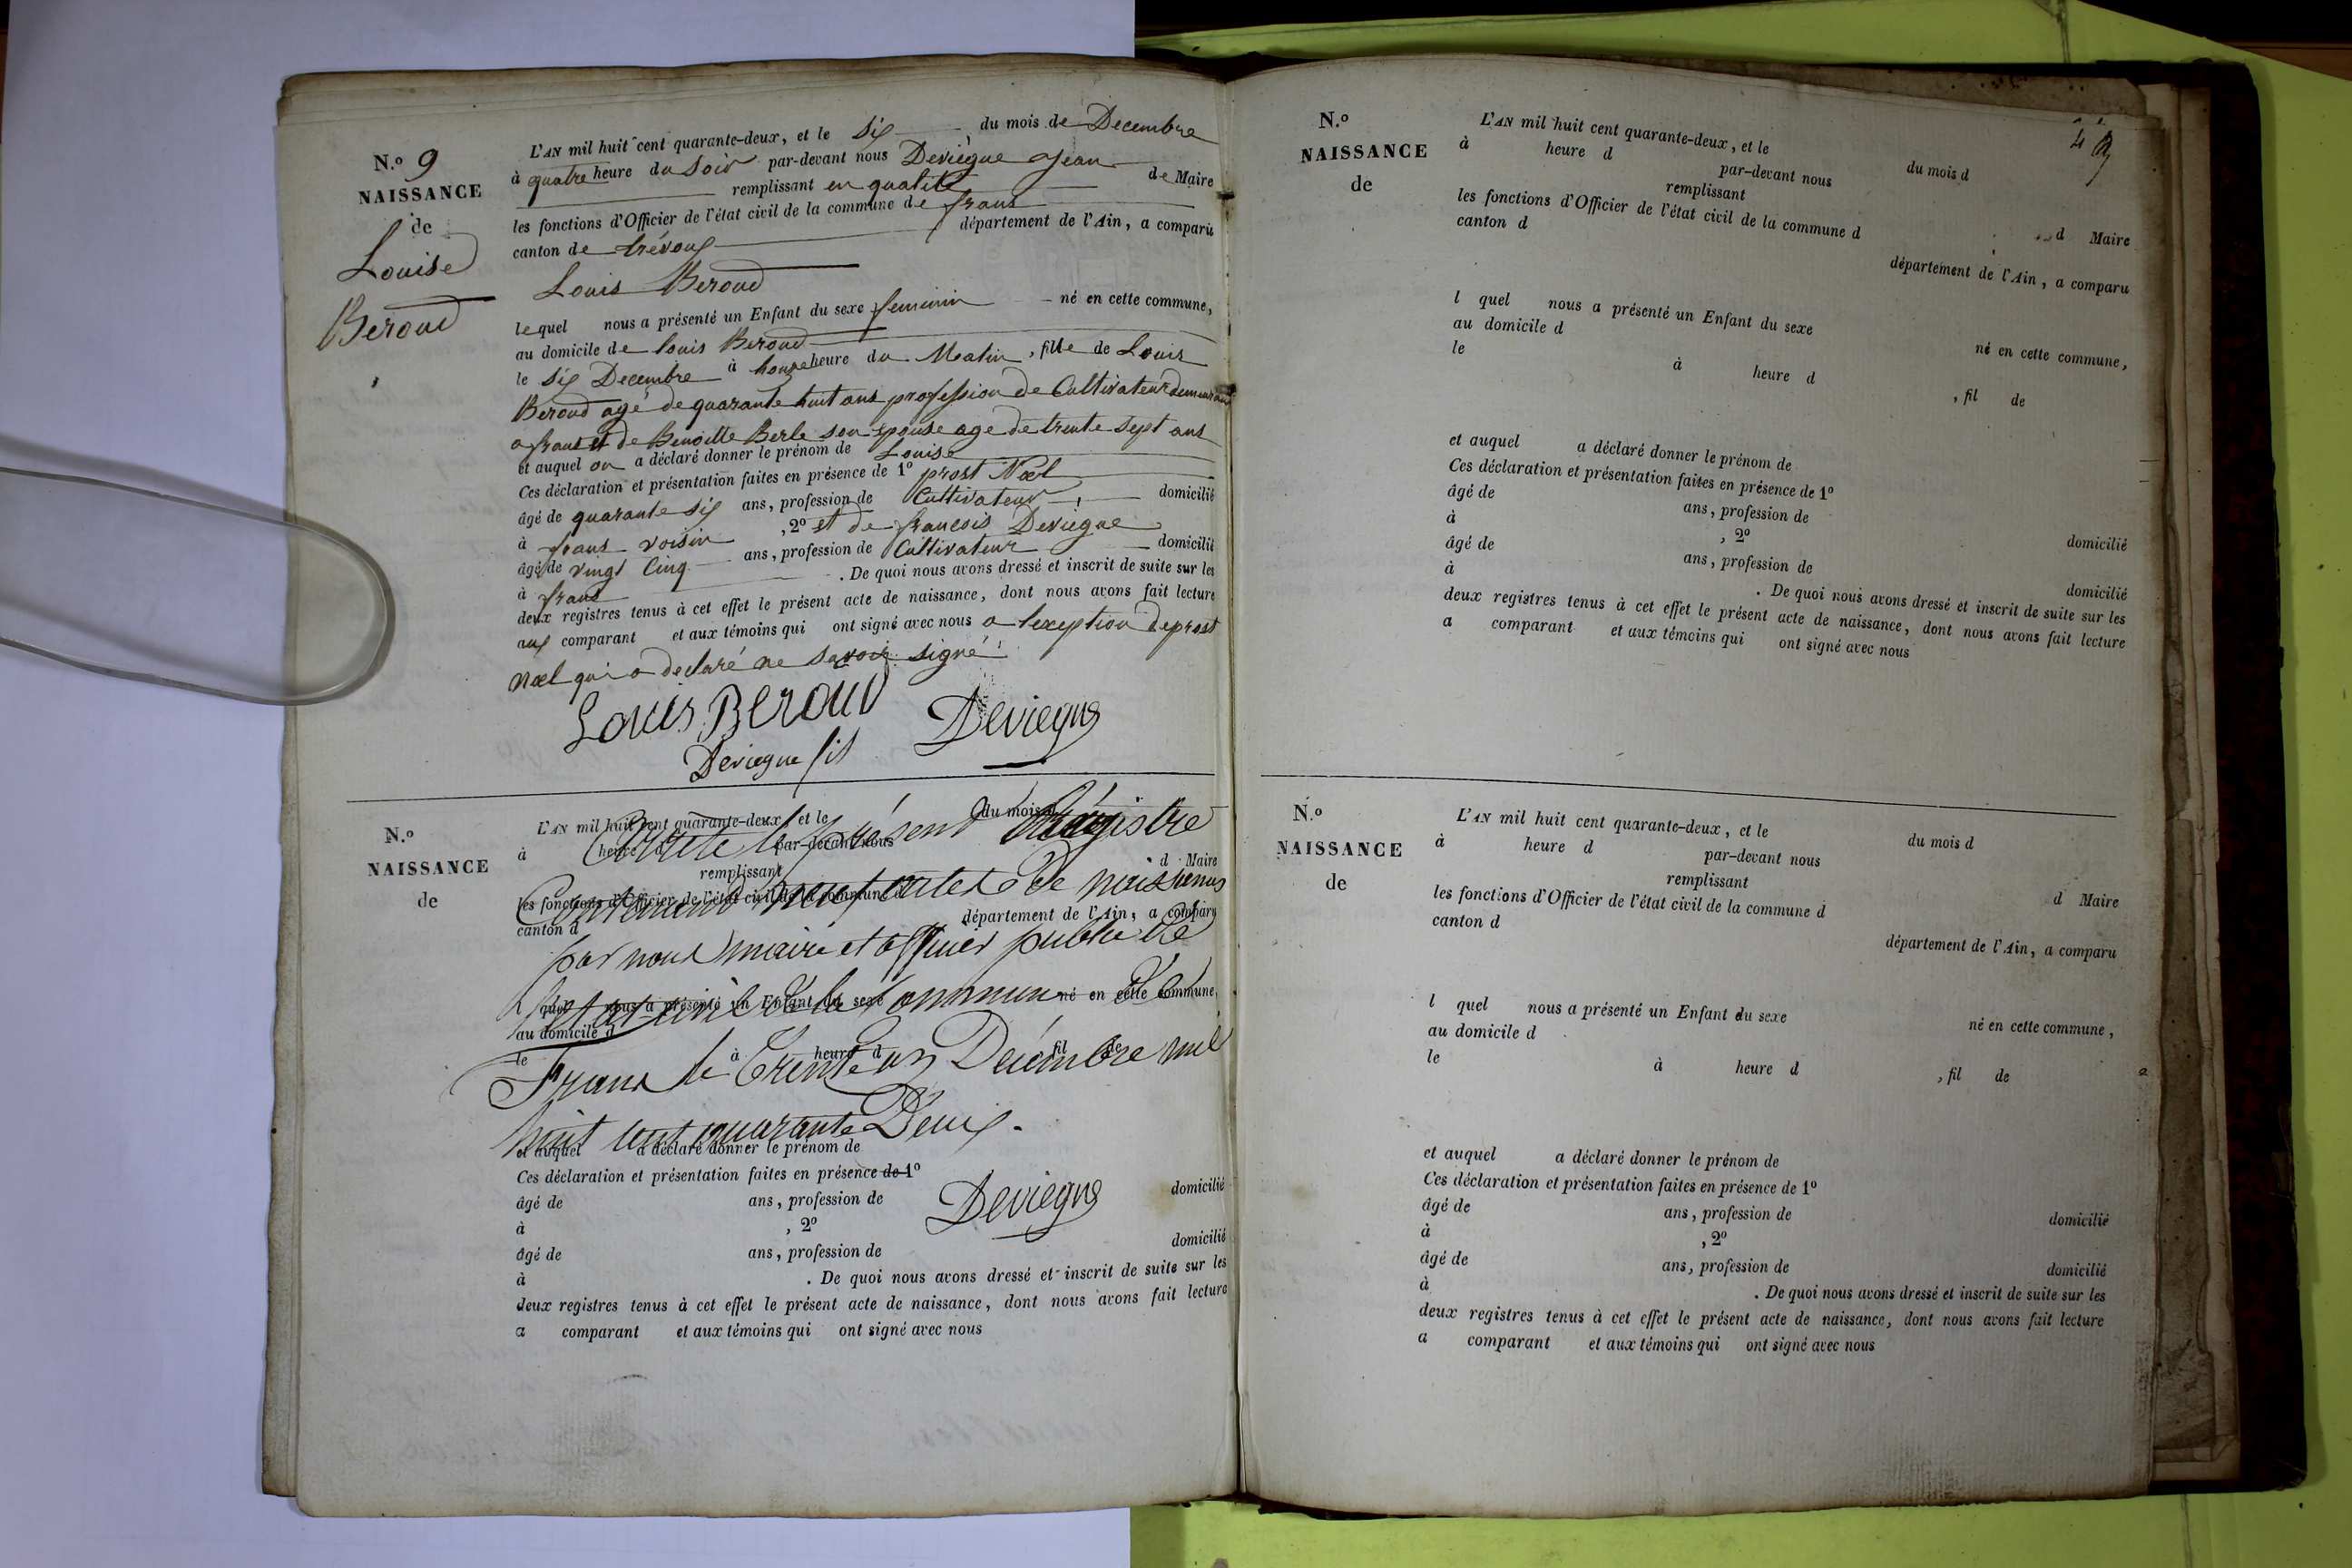 N.o 9
NAISSANCE
de
Louise
Beroud
L'AN mil huit cent quarante-deux, et le Six du mois de Decembre
à quatre heure du Soir par-devant nous Deviegue Jean
remplissant en qualité de Maire
les fonctions d'Officier de l'état civil de la commune de frans
canton de trévoux département de l'Ain, a comparu
Louis Beroud
lequel nous a présenté un Enfant du sexe feminin né en cette commune,
au domicile de louis Beroud
le Six Decembre à honze heure du Matin, fille de Louis
Beroud agé de quarante huit ans profession de Cultivateur demeurant
a frans et de Benoitte Berle son epouse age de trente sept ans
et auquel on a déclaré donner le prénom de Louise
Ces déclaration et présentation faites en présence de 1o prost Noel
âgé de quarante six ans, profession de Cultivateur, domicilié
à frans voisin, 2o et de francois Deviegue
âgé de vingt Cinq ans, profession de Cultivateur domicilié
à frans. De quoi nous avons dressé et inscrit de suite sur les
deux registres tenus à cet effet le présent acte de naissance, dont nous avons fait lecture
aux comparant et aux témoins qui ont signé avec nous a lexeption de prost
Noel qui a declaré ne savoir signé
Louis Beroud
Deviegue
Deviegue fils
N.o
NAISSANCE
de
L'AN mil huit cent quarante-deux, et le du mois d
à heure d par-devant nous
remplissant d Maire
les fonctions d'Officier de l'état civil de la commune d
canton d département de l'Ain, a comparu
l quel nous a présenté un Enfant du sexe né en cette commune,
au domicile d
le à heure d fil de
Arrêté le présent Régistre
Contenant neuf actes de naissances
par nous maire et officier public de
l'état civil de la Commune de
Frans le Trente un Decembre mil
huit cent quarante Deux.
et auquel a déclaré donner le prénom de
Ces déclaration et présentation faites en présence de 1o
âgé de ans, profession de domicilié
Deviegue
à , 2o
âgé de ans, profession de domicilié
à . De quoi nous avons dressé et inscrit de suite sur les
deux registres tenus à cet effet le présent acte de naissance, dont nous avons fait lecture
a comparant et aux témoins qui ont signé avec nous
N.o
NAISSANCE
de
L'AN mil huit cent quarante-deux, et le du mois d
à heure d par-devant nous
remplissant d Maire
les fonctions d'Officier de l'état civil de la commune d
canton d département de l'Ain, a comparu
l quel nous a présenté un Enfant du sexe né en cette commune,
au domicile d
le à heure d , fil de
et auquel a déclaré donner le prénom de
Ces déclaration et présentation faites en présence de 1o
âgé de ans, profession de domicilié
à , 2o
âgé de ans, profession de domicilié
à . De quoi nous avons dressé et inscrit de suite sur les
deux registres tenus à cet effet le présent acte de naissance, dont nous avons fait lecture
a comparant et aux témoins qui ont signé avec nous
N.o
NAISSANCE
de
L'AN mil huit cent quarante-deux, et le du mois d
à heure d par-devant nous
remplissant d Maire
les fonctions d'Officier de l'état civil de la commune d
canton d département de l'Ain, a comparu
l quel nous a présenté un Enfant du sexe né en cette commune,
au domicile d
le à heure d , fil de
et auquel a déclaré donner le prénom de
Ces déclaration et présentation faites en présence de 1o
âgé de ans, profession de domicilié
à , 2o
âgé de ans, profession de domicilié
à . De quoi nous avons dressé et inscrit de suite sur les
deux registres tenus à cet effet le présent acte de naissance, dont nous avons fait lecture
a comparant et aux témoins qui ont signé avec nous